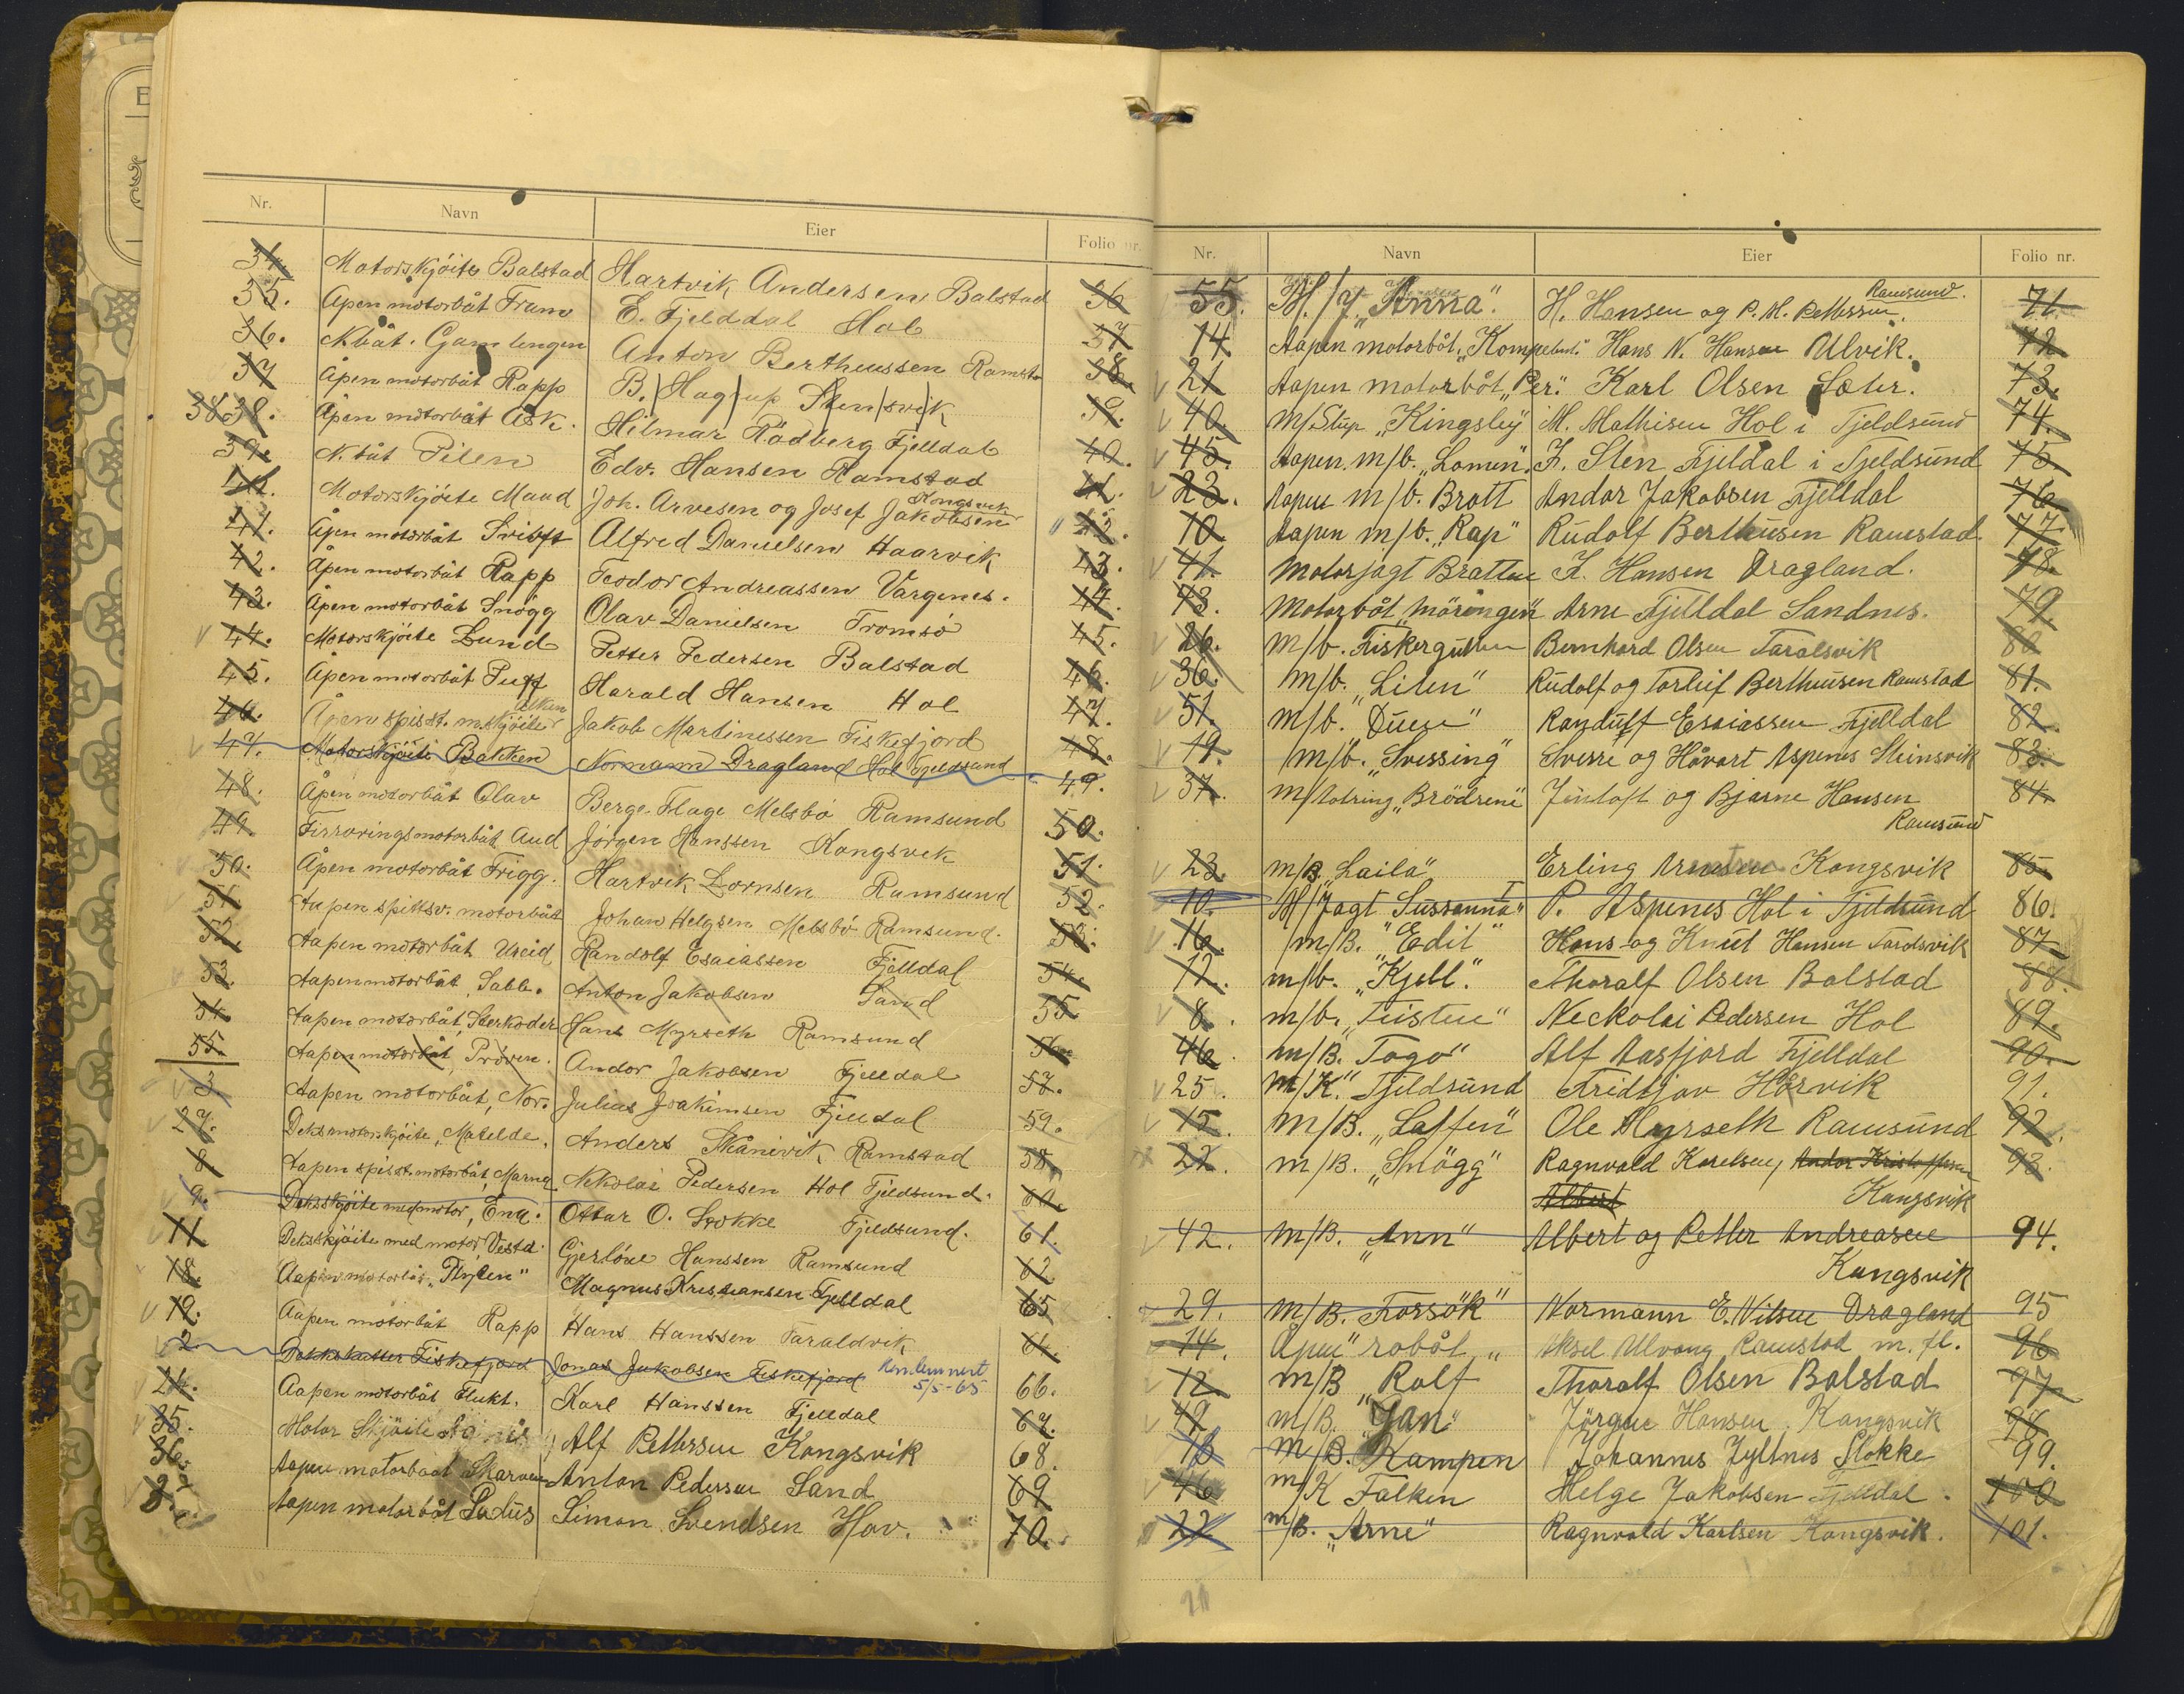 Nr. Navn Eier Folio nr.
34. Motorskjöite Balstad Hartvik Andersen Balstad 36
35. Åpen motorbåt Fram E. Fjelddal Hol 37
36. N.båt. Gamlengen Anton Bertheussen Ramst. 38.
37 Åpen motorbåt Rapp B. Hagrup Stensvik 39.
38 38. Åpen motorbåt Ask. Hilmar Rödberg Fjelldal 40.
39. N.båt Pilen Edv. Hansen Ramstad 41.
Kongsvik
40. Motorskjöite Maud Joh. Arvesen og Josef Jakobsen 42.
41. Åpen motorbåt Alfred Danielsen Haarvik 43.
42. Åpen motorbåt Rapp Teodor Andreassen Vargenes. 44.
43. Åpen motorbåt Snögg Olav Danielsen Tromsö 45.
44. Motorskjöite Lund Petter Pedersen Balstad 46.
45. Åpen motorbåt Puff Harald Hansen Hol 47.
46. Åpen spisst. m.skjöite Jakob Martinessen Fiskefjord 48.
47. Motorskjöite Bakken Normann Dragland Hol Tjeldsund 49.
48. Åpen motorbåt Olav Berge Flage Melsbö Ramsund 50.
49. Firroringsmotorbåt Aud Jörgen Hanssen Kongsvik 51.
50. Åpen motorbåt Frigg. Hartvik Lornsen Ramsund 52.
51. Aapen spittsv. motorbåt Johan Helgsen Melsbö Ramsund. 53.
52. Aapen motorbåt Randolf Esaiassen Fjelldal 54.
53. Aapen motorbåt, Sabb. Anton Jakobsen Sand 55
54. Aapen motorbåt, Sterkoder Hans Myrseth Ramsund 56.
55. Aapen motorbåt, Pröven. Andor Jakobsen Fjelldal 57.
3. Aapen motorbåt, Nor. Julius Joakimsen Fjelldal 59.
27. Deksmotorskjöite, Matelde. Anders Skånevik Ramstad 58.
8 Aapen spisst. motorbåt, Marna Nikolai Pedersen Hol Tjeldsund. 60.
9. Deksskjöite med motor, Ena. Ottar O. Stokke Tjeldsund. 61.
11 Deksskjöite med motor, Vestd. Gjerlöve Hanssen Ramsund 62
18. Aapen motorbåt "Flyten" Magnus Kristiansen Fjelldal 65
19. Aapen motorbåt Rapp Hans Hanssen Taraldvik 64.
2 Dekskutter Fiskefjord Jonas Jakobsen Fiskefjord 5/5-65 66.
24. Aapen motorbåt Flukt. Karl Hanssen Fjelldal 67.
35. Motor Skjöite Alf Pettersen Kongsvik 68.
36. Aapen motorbaat Skarven Anton Pedersen Sand 69
8. Aapen motorbåt Simon Svendsen Hov. 70.
Nr. Navn Eier Folio nr.
Ramsund.
55. M./J. "Anna". H. Hansen og P. M. Pettersen. 71.
14. Aapen motorbåt, "Kompebat." Hans N. Hansen Ulvik. 72
21 Aapen motorbåt "Per". Karl Olsen Sæter. 73.
40. M/Slup "Kingsley" M. Mathisen Hol i Tjeldsund 74.
45. Aapen. m/b. "Lomen". K. Sten Fjeldal i Tjeldsund 75.
23. Aapen m/b. Brott Andor Jakobsen Fjelldal 76.
10 Aapen m/b. "Rap" Rudolf Berthusen Ramstad. 77.
41. Motorjagt Bratten K. Hansen Dragland. 78.
43. Motorbåt "Möringen" Arne Fjelldal Sandnes. 79.
26. m/b. Fiskergutten Bernhard Olsen Taralsvik 80
36. m/b. "Liten" Rudolf og Torleif Berthusen Ramstad 81.
51. m/b. "Duen" Randulf Essiassen Fjelldal 82.
19. m/b. "Svessing" Sverre og Håvart Aspenes Steinsvik 83.
37. m/ "Brödrene" Jentoft og Bjarne Hansen 84.
Ramsund
23. m/B. "Laila" Erling Arntsen Kongsvik 85.
10. M/Jagt Sussanna" I P. Aspenes Hol i Tjeldsund 86.
16. m/B. "Edit" Hans og Knut Hansen Taralsvik 87
17. m/b. "Kjell". Thoralf Olsen Balstad 88.
8. m/b. "Tusten" Neckolai Pedersen Hol 89.
46. m/B. "Togo" Alf Aasfjord Fjelldal 90.
25. M/K." Tjeldsund Fridtjov Hårvik 91.
15. M/B. "Laffen" Ole Myrseth Ramsund 92.
22. m/B. "Snögg" Ragnvald Karelsen, Andor Kristoffersen 93.
Albert Kangsvik
42. m/B. "Ann" Albert og Petter Andreasen 94.
Kangsvik
29. m/B. Forsök" Normann E. Nilsen Dragland 95
14. Åpen" robåt " Aksel Ulvang Ramstad m. fl. 96
12 m/B Rolf Thoralf Olsen Balstad 97
49 m/B. "Jan" Jörgen Hansen. Kangsvik 98
18 m/B. Kampen Johannes Jyltnes Stokke 99.
46 m/K Falken Helge Jakobsen Fjelldal. 100
22 m/B. "Arne" Ragnvald Karlsen Kongsvik. 101.